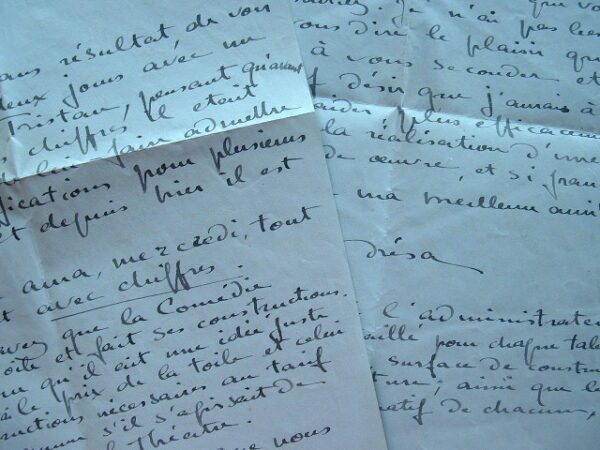 ans résultat de von
deux jours avec un
Tristan, pensant qu'avant
chiffres il etoit
faire admettre
fications pour plusieurs
et depuis hier il est
aura, mercredi, tout
avec chiffres.
avez que la Comédie
toile et fait ses constructions.
qu'il eût une idée juste
le prix de la toile et celui
ructions necessaires au tarif
s'il s'agissait de
Théâtre.
que vous
Je n'ai pas bes
ous dire le plaisir qu
à vous seconder et
désir que j'aurais à
aider plus efficacem
la réalisation d'une
de oeuvre, et si fran
ma meilleure ami
Drésa
l'administrateu
aillé pour chaque tabl
surface de constru
ture; ainsi que le
atif de chacun,